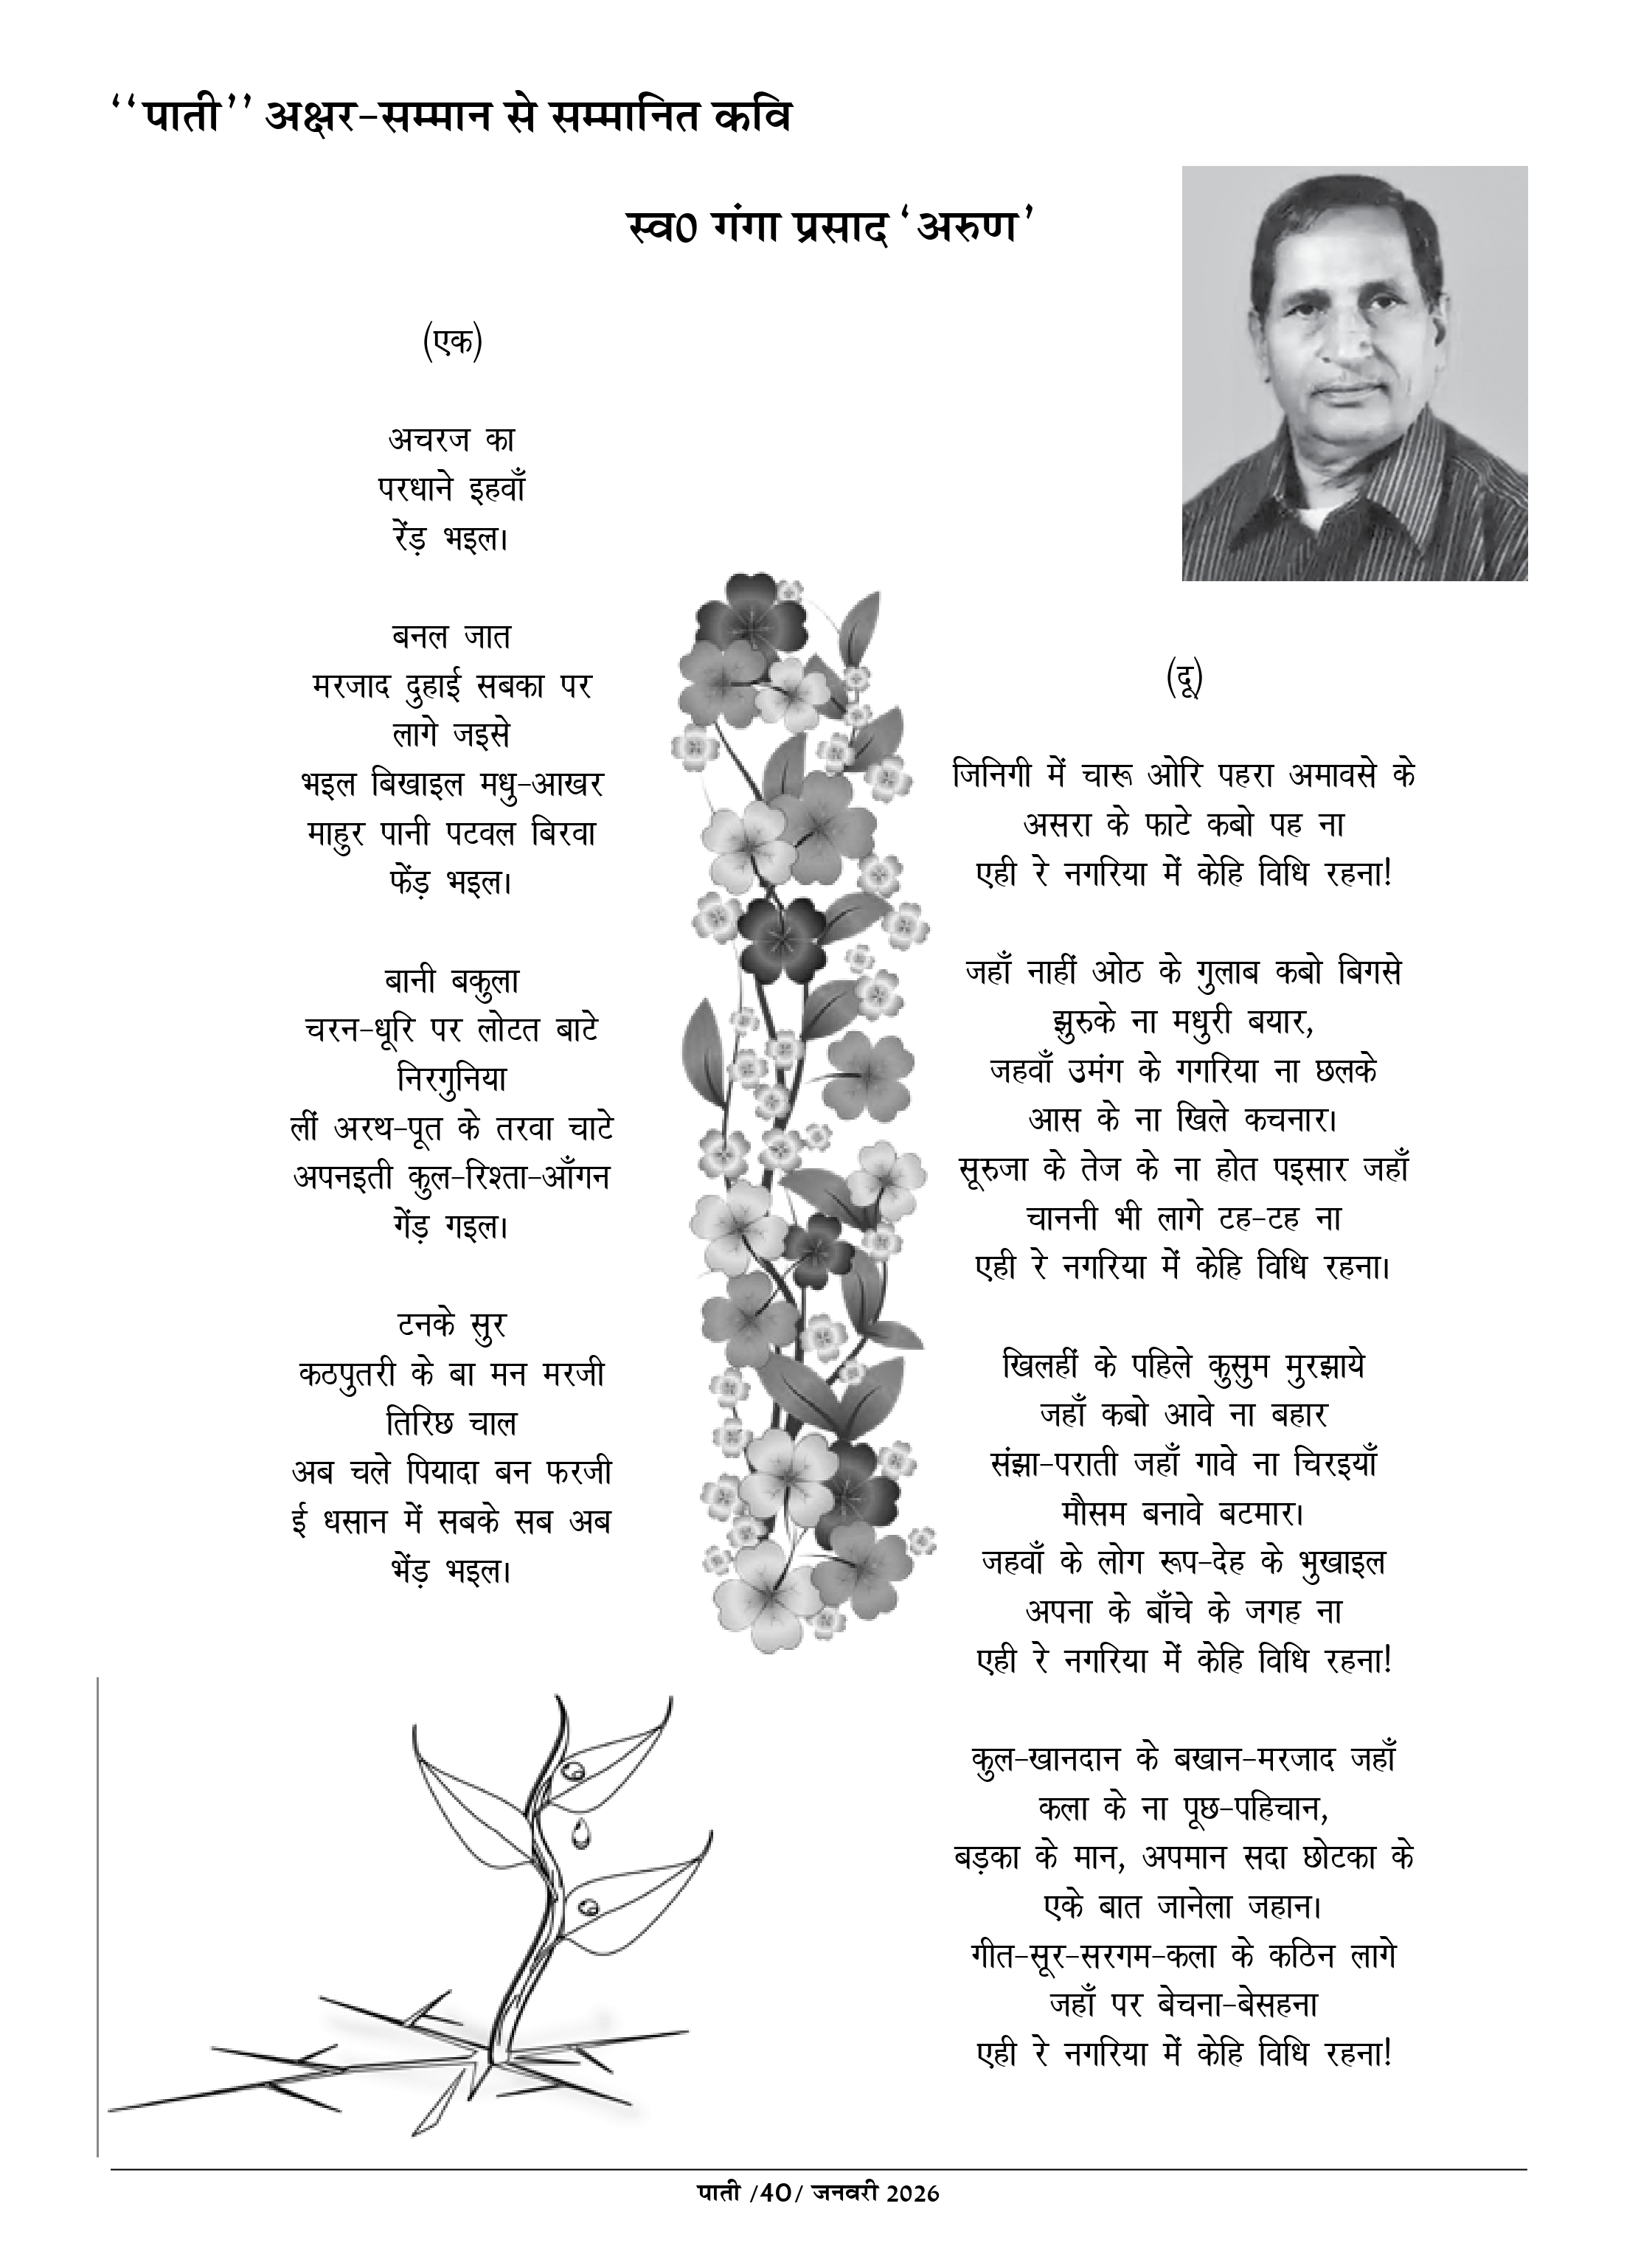 ‘‘पाती’’ अक्षर-सम्मान से सम्मानित कवि
स्व0 गंगा प्रसाद ‘अरुण’
(एक)
अचरज का
परधाने इहवाँ
रेंड़ भइल।
बनल जात
मरजाद दुहाई सबका पर
लागे जइसे
भइल बिखाइल मधु-आखर
माहुर पानी पटवल बिरवा
फेंड़ भइल।
बानी बकुला
चरन-धूरि पर लोटत बाटे
निरगुनिया
लीं अरथ-पूत के तरवा चाटे
अपनइती कुल-रिश्ता-आँगन
गेंड़ गइल।
टनके सुर
कठपुतरी के बा मन मरजी
तिरिछ चाल
अब चले पियादा बन फरजी
ई धसान में सबके सब अब
भेंड़ भइल।
(दू)
जिनिगी में चारू ओरि पहरा अमावसे के
असरा के फाटे कबो पह ना
एही रे नगरिया में केहि विधि रहना!
जहाँ नाहीं ओठ के गुलाब कबो बिगसे
झुरुके ना मधुरी बयार,
जहवाँ उमंग के गगरिया ना छलके
आस के ना खिले कचनार।
सूरुजा के तेज के ना होत पइसार जहाँ
चाननी भी लागे टह-टह ना
एही रे नगरिया में केहि विधि रहना।
खिलहीं के पहिले कुसुम मुरझाये
जहाँ कबो आवे ना बहार
संझा-पराती जहाँ गावे ना चिरइयाँ
मौसम बनावे बटमार।
जहवाँ के लोग रूप-देह के भुखाइल
अपना के बाँचे के जगह ना
एही रे नगरिया में केहि विधि रहना!
कुल-खानदान के बखान-मरजाद जहाँ
कला के ना पूछ-पहिचान,
बड़का के मान, अपमान सदा छोटका के
एके बात जानेला जहान।
गीत-सूर-सरगम-कला के कठिन लागे
जहाँ पर बेचना-बेसहना
एही रे नगरिया में केहि विधि रहना!
पाती /40/ जनवरी 2026